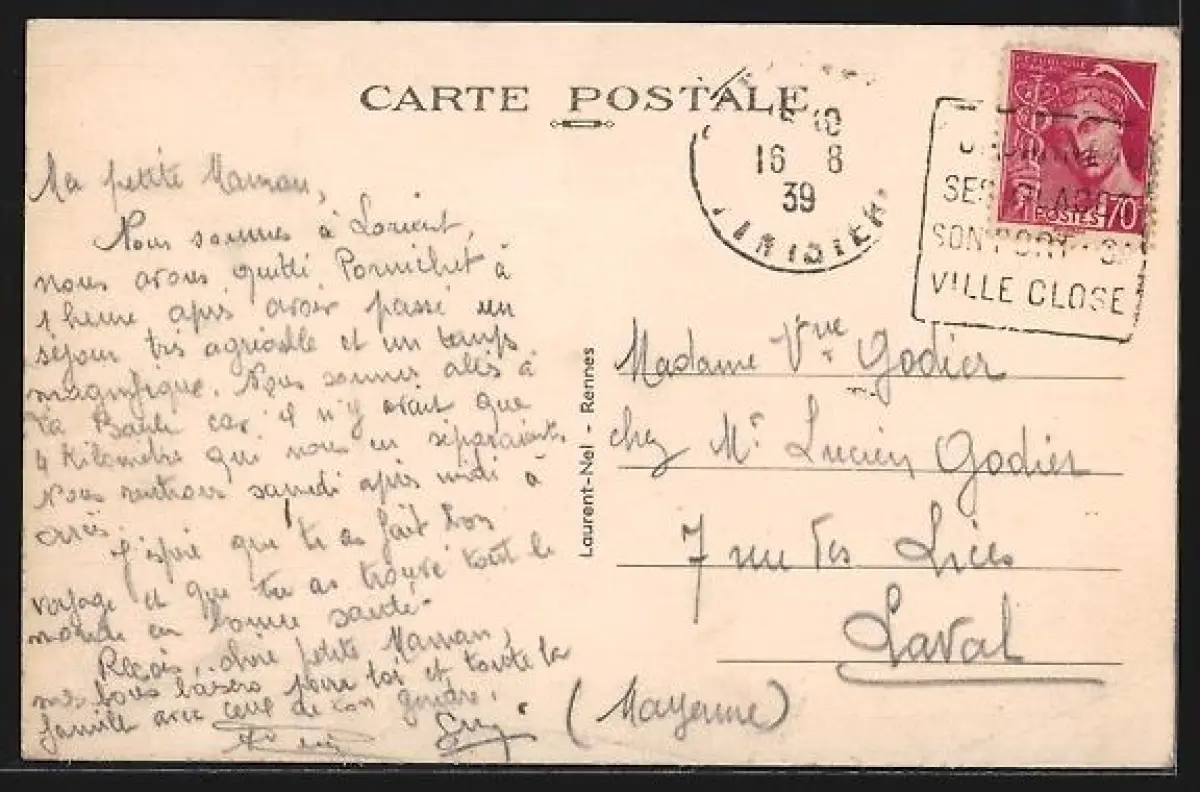 CARTE POSTALE
Ma petite Maman,
Nous sommes à Lorient,
nous avons quitté Pornichet à
1 heure après avoir passé un
séjour très agréable et un temps
magnifique. Nous sommes allés à
La Baule car il n'y avait que
4 kilomètre qui nous en séparaient.
Nous rentrons samedi après midi à
J'espère que tu as fait bon
voyage et que tu as trouvé tout le
monde en bonne santé.
Reçois, chère petite Maman,
mes bons baisers pour toi et toute la
famille avec ceux de ton gendre.
Laurent-Nel - Rennes
16 8
39
FINISTER
SES GLACE
SON PORT - SA
VILLE CLOSE
POSTES 70
Madame Vve Godier
chez Mr Lucien Godier
7 rue des Lices
Laval
(Mayenne)